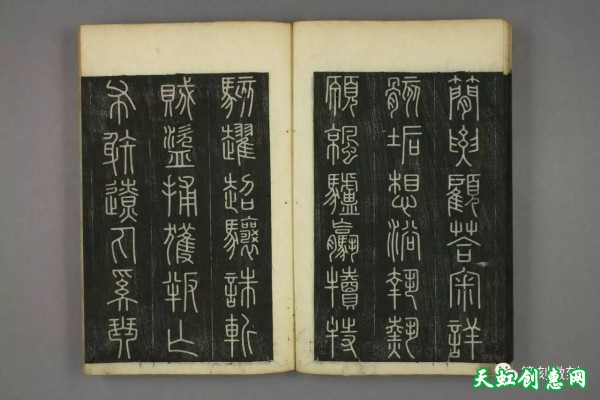 簡要顧荅宷詳
骸垢想浴執熱
願涼驢驘犢特
駭趯超驤誅斬
賊盜捕獲叛亡
布射遼丸嵇琴
天虹创惠网